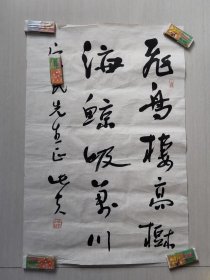 飛鳥棲高樹
海鲸吸万川
民先生正